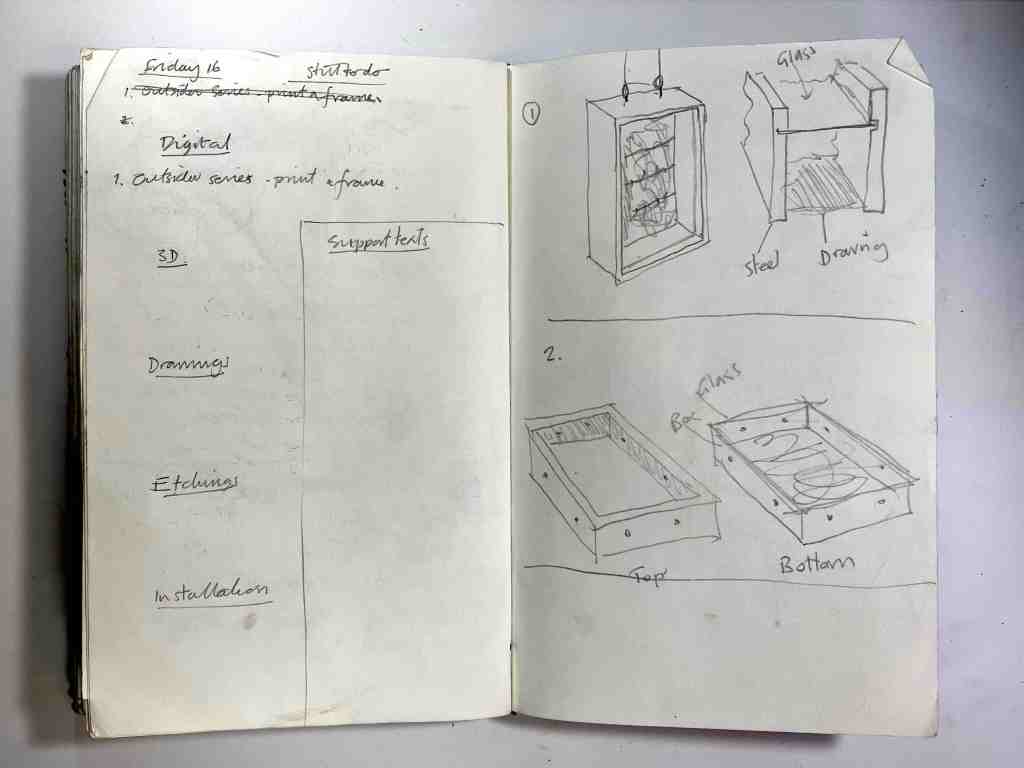 Friday 16
still to do
1. Outsider series - print & frame.
2.
Digital
1. Outsider series - print & frame.
3D.
Support texts
Drawings
Etchings
Installation
1
Glass
Steel
Drawing
2.
Glass
Box
Top
Bottom